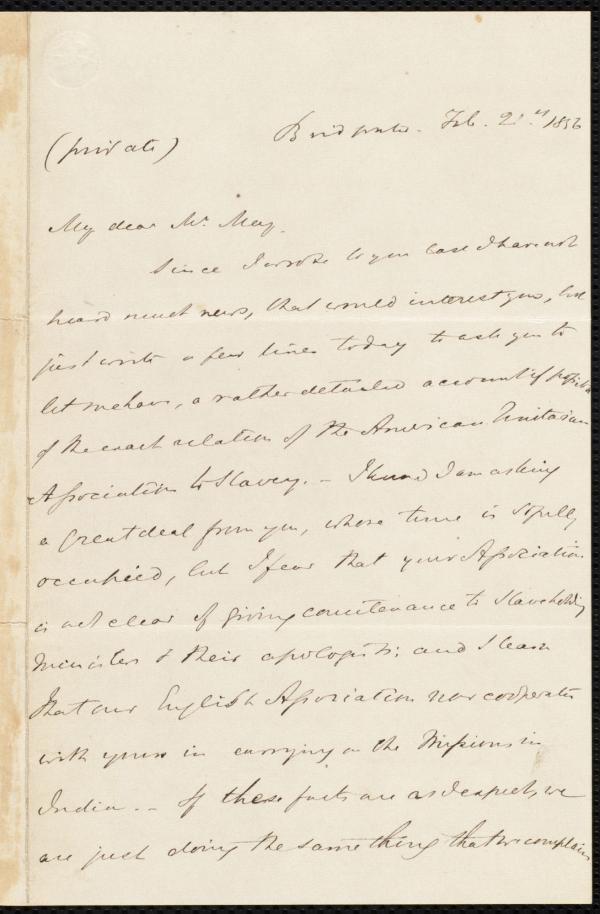 (private)
Bridgwater. Feb. 21st 1856
My dear Mr. May.
Since I wrote to you last I have not
heard much news, that would interest you, but
just write a few lines today to ask you to
let me have, a rather detailed account if possible
of the exact relation of the American Unitarian
Association to Slavery. - I know I am asking
a great deal from you, whose time is so fully
occupied, but I fear that your Association
is not clear of giving countenance to Slaveholding
Ministers & their apologists; and I learn
that our English Association now cooperates
with yours in carrying on the Missions in
India. - If these facts are as I expect, we
are just doing the same thing that we complain